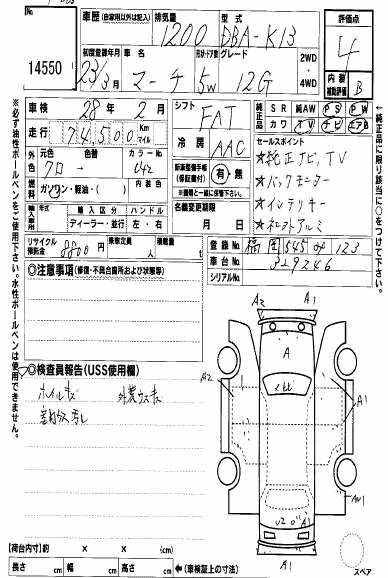 No.
14550
車歴 (自家用以外は記入)
排気量 1200
型式 DBA-K13
評価点 4
初度登録年月 23年3月
車名 マーチ
形状・ドア数 5W
グレード 12G
2WD
4WD
内装補助評価 B
車検 28年2月
シフト FAT
純正品 SR 純AW PS PW
カワ TV ナビ エアB
走行 74,500 Km マイル
冷房 AAC
セールスポイント
★純正ナビ,TV
★バックモニター
★インテリキー
★社外アルミ
外色 元色 クロ → 色替 カラーNo.
内装色
燃料 ガソリン・軽油・( )
新車整備手帳(保証書付) 有・無
※書類と一緒に保管下さい。
輸入車 年式 輸入区分 ハンドル
ディーラー・並行 左・右
名義変更期限 月 日
リサイクル預託金 8800円
乗車定員 人
積載量 t
登録No. 福岡 545 123
車台No. 329246
シリアルNo.
◎注意事項(修復・不具合箇所および状態等)
◎検査員報告(USS使用欄)
ホイルキズ
A2 A1
A
A2
A1
A1
A1
スペア
【荷台内寸】約 × × (cm)
長さ cm 幅 cm 高さ cm ←(車検証上の寸法)
※必ず油性ボールペンをご使用下さい。水性ボールペンは使用できません。
←純正品に限り該当に○をつけて下さい。